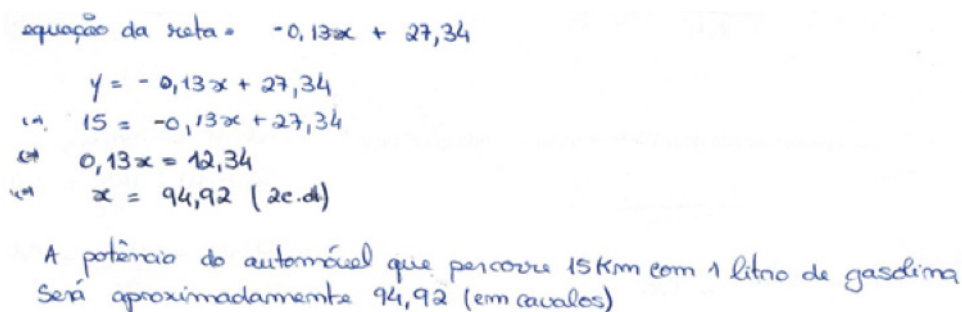 equação da reta = -0,13x + 27,34
y = -0,13x + 27,34
(=) 15 = -0,13x + 27,34
(=) 0,13x = 12,34
(=) x = 94,92 (2c.d)
A potência do automóvel que percorre 15Km com 1 litro de gasolina
Será aproximadamente 94,92 (em cavalos)